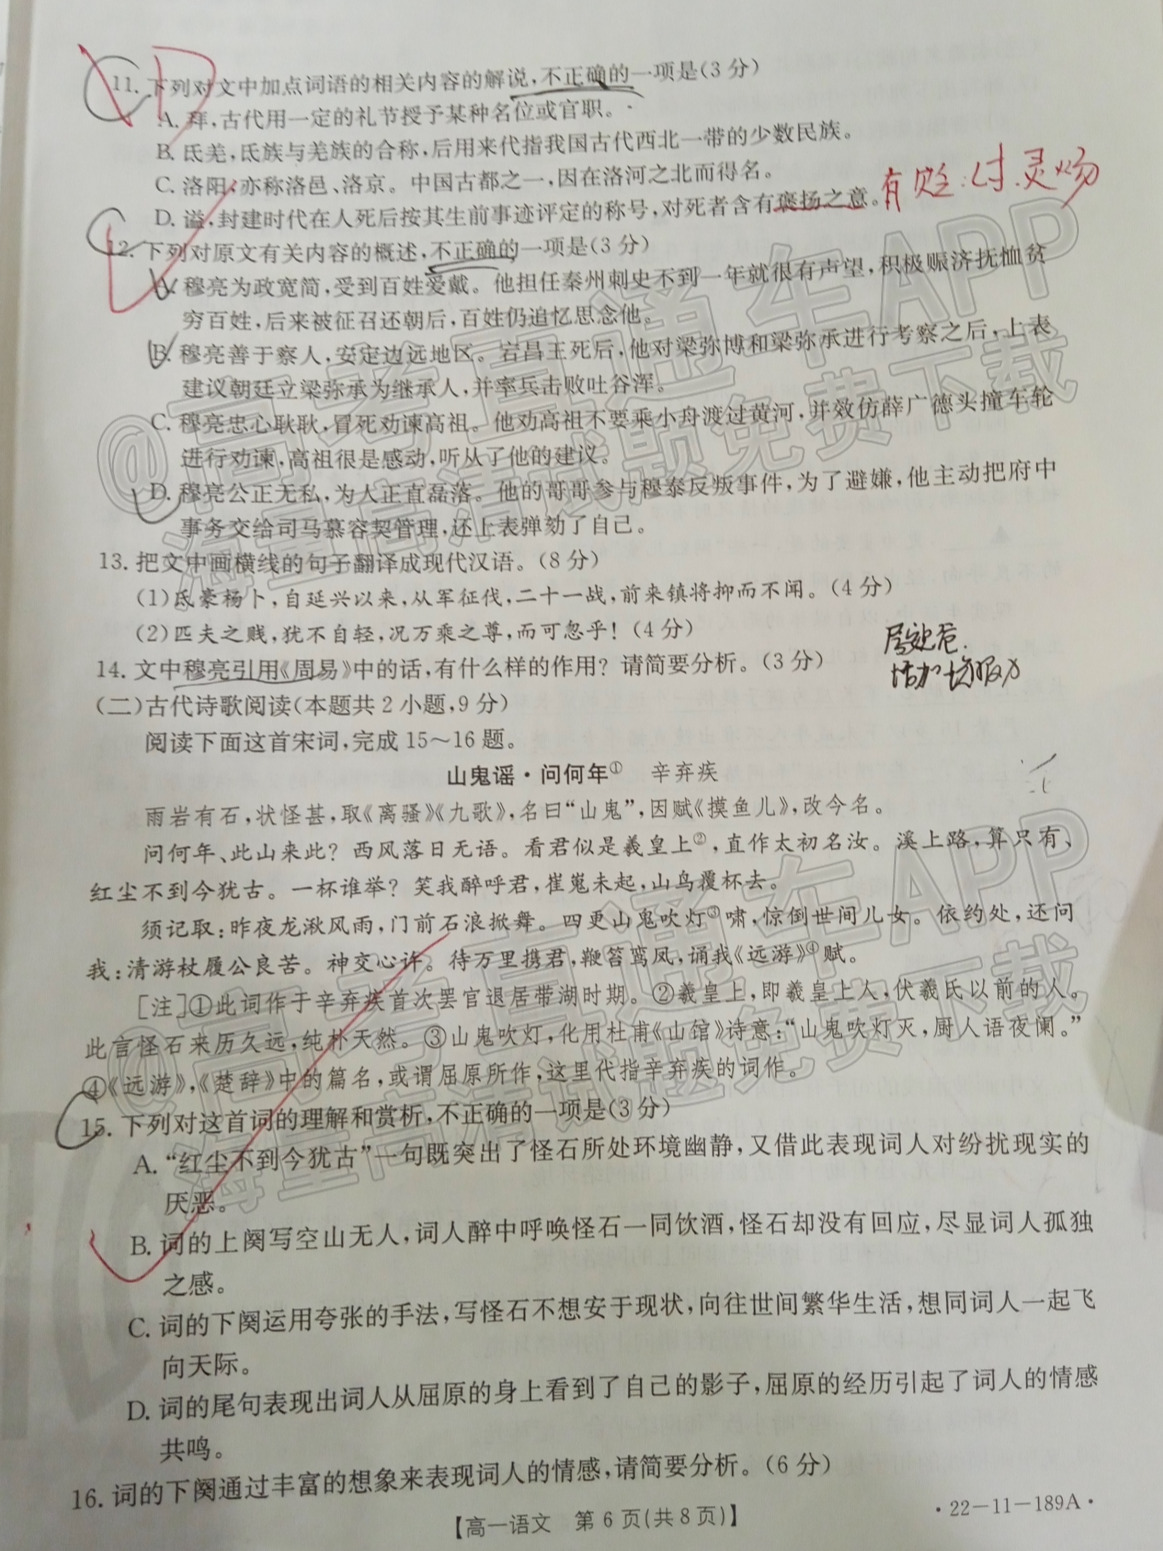 11. 下列对文中加点词语的相关内容的解说,不正确的一项是(3分)
A. 拜,古代用一定的礼节授予某种名位或官职。
B. 氐羌,氐族与羌族的合称,后用来代指我国古代西北一带的少数民族。
C. 洛阳,亦称洛邑、洛京。中国古都之一,因在洛河之北而得名。
D. 谥,封建时代在人死后按其生前事迹评定的称号,对死者含有褒扬之意。
有贬:
12. 下列对原文有关内容的概述,不正确的一项是(3分)
A. 穆亮为政宽简,受到百姓爱戴。他担任秦州刺史不到一年就很有声望,积极赈济抚恤贫
穷百姓,后来被征召还朝后,百姓仍追忆思念他。
B. 穆亮善于察人,安定边远地区。宕昌王死后,他对梁弥博和梁弥承进行考察之后,上表
建议朝廷立梁弥承为继承人,并率兵击败吐谷浑。
C. 穆亮忠心耿耿,冒死劝谏高祖。他劝高祖不要乘小舟渡过黄河,并效仿薛广德头撞车轮
进行劝谏,高祖很是感动,听从了他的建议。
D. 穆亮公正无私,为人正直磊落。他的哥哥参与穆泰反叛事件,为了避嫌,他主动把府中
事务交给司马慕容契管理,还上表弹劾了自己。
13. 把文中画横线的句子翻译成现代汉语。(8分)
(1)氐豪杨卜,自延兴以来,从军征伐,二十一战,前来镇将抑而不闻。(4分)
(2)匹夫之贱,犹不自轻,况万乘之尊,而可忽乎!(4分)
14. 文中穆亮引用《周易》中的话,有什么样的作用?请简要分析。(3分)
(二)古代诗歌阅读(本题共2小题,9分)
阅读下面这首宋词,完成15～16题。
山鬼谣·问何年① 辛弃疾
雨岩有石,状怪甚,取《离骚》《九歌》,名曰“山鬼”,因赋《摸鱼儿》,改今名。
问何年、此山来此?西风落日无语。看君似是羲皇上②,直作太初名汝。溪上路,算只有、
红尘不到今犹古。一杯谁举?笑我醉呼君,崔嵬未起,山鸟覆杯去。
须记取:昨夜龙湫风雨,门前石浪掀舞。四更山鬼吹灯③啸,惊倒世间儿女。依约处,还问
我:清游杖履公良苦。神交心许。待万里携君,鞭笞鸾凤,诵我《远游》④赋。
[注]①此词作于辛弃疾首次罢官退居带湖时期。②羲皇上,即羲皇上人,伏羲氏以前的人。
此言怪石来历久远,纯朴天然。③山鬼吹灯,化用杜甫《山馆》诗意:“山鬼吹灯灭,厨人语夜阑。”
④《远游》,《楚辞》中的篇名,或谓屈原所作,这里代指辛弃疾的词作。
15. 下列对这首词的理解和赏析,不正确的一项是(3分)
A. “红尘不到今犹古”一句既突出了怪石所处环境幽静,又借此表现词人对纷扰现实的
厌恶。
B. 词的上阕写空山无人,词人醉中呼唤怪石一同饮酒,怪石却没有回应,尽显词人孤独
之感。
C. 词的下阕运用夸张的手法,写怪石不想安于现状,向往世间繁华生活,想同词人一起飞
向天际。
D. 词的尾句表现出词人从屈原的身上看到了自己的影子,屈原的经历引起了词人的情感
共鸣。
16. 词的下阕通过丰富的想象来表现词人的情感,请简要分析。(6分)
【高一语文 第6页(共8页)】
·22-11-189A·
@高考直通车APP
海量高清试题免费下载
@高考直通车APP
海量高清试题免费下载